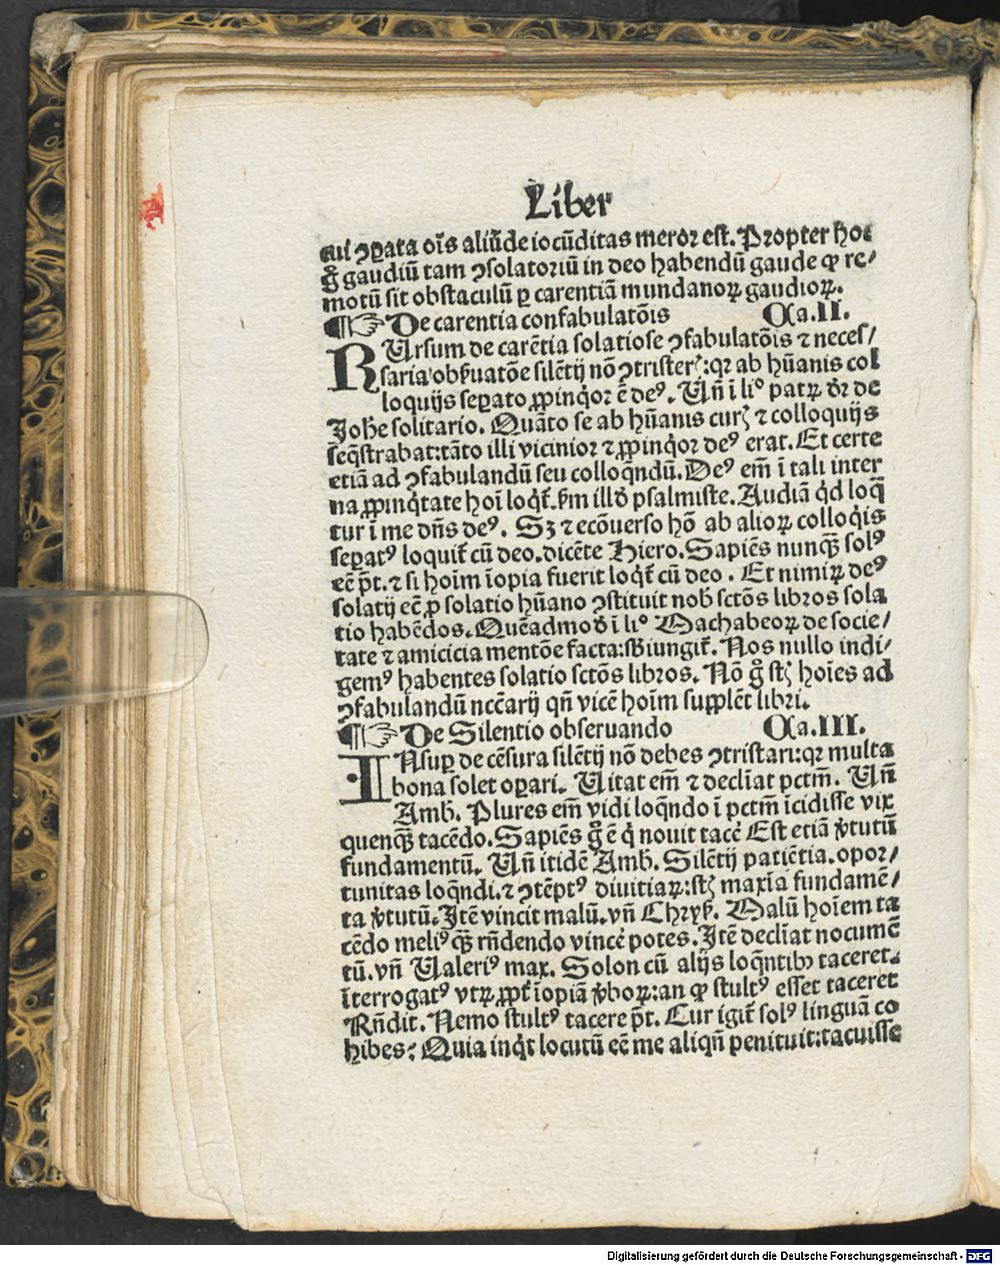 Liber
cui ꝯꝑata oı̄s aliūde iocūditas meror est. Propter hoc
gͦ gaudiū tam ꝯsolatoriū in deo habendū gaude ꝙ re⸗
motū sit obstaculū ꝑ carentiā mundanoꝝ gaudioꝝ.
¶☞ De carentia confabulatōis Ca.II.
RUrsum de carētia solatiose ꝯfabulatōis ⁊ neces⸗
saria obẜuatōe silētij nō ꝯtristeris:qꝛ ab hūanis col
loquijs seꝑato ꝓpinqͥor ē deꝰ. Uñ ı̄ liº patꝝ dr̄ de
Joħe solitario. Quāto se ab hūanis curis ⁊ colloquijs
seq̄strabat:tāto illi vicinior ⁊ ꝓpinqͥor deꝰ erat. Et certe
etiā ad ꝯfabulandū seu colloqͣndū. Deꝰ em̄ ı̄ tali inter
na ꝓpinqͥtate hoı̄ loqͥt̄. ẜm illđ psalmiste. Audiā qͥd loq̄
tur ı̄ me dn̄s deꝰ. Sꝫ ⁊ ecōuerso hō ab alioꝝ colloqͥis
seꝑatꝰ loquit̄ cū deo. dicēte Hiero. Sapiēs nunqͣꝫ solꝰ
eē p̄t. ⁊ si hoı̄m ı̄opia fuerit loqͥt̄ cū deo. Et nimiꝝ deꝰ
solatij eē ꝓ solatio hūano ꝯstituit nob̄ sctōs libros sola
tio habēdos. Quēadmođ ı̄ liº Machabeoꝝ de socie⸗
tate ⁊ amicicia mentōe facta:sƀiungit̄. Nos nullo indi⸗
gemꝰ habentes solatio sctōs libros. Nō gͦ sūt hoı̄es ad
ꝯfabulandū nccārij qn̄ vicē hoı̄m supplēt libri.
¶☞ De Silentio obseruando Ca.III.
INsuꝑ de cēsura silētij nō debes ꝯtristari:qꝛ multa
bona solet oꝑari. Uitat em̄ ⁊ declı̄at pctm̄. Uñ
Amb. Plures em̄ vidi loqͣndo ı̄ pctm̄ ı̄cidisse vix
quenqͣꝫ tacēdo. Sapiēs gͦ ē qͥ nouit tacere Est etiā v̓tutū
fundamentū. Uñ itidē Amb. Silētij patiētia. opor⸗
tunitas loqͣndi. ⁊ ꝯtēptꝰ diuitiaꝝ:sūt maxı̄a fundamē⸗
ta v̓tutū. Itē vincit malū. vñ Chryẜ. Malū hoı̄em ta
cēdo meliꝰ qͣꝫ rn̄dendo vincere potes. Itē declı̄at nocumē
tū. vñ Ualeriꝰ max. Solon cū alijs loq̄ntibꝰ taceret.
ı̄terrogatꝰ vtꝝ ꝓpt̄ ı̄opiā v̓boꝝ:an ꝙ stultꝰ esset taceret
Rn̄dit. Nemo stultꝰ tacere p̄t. Cur igit̄ solꝰ linguā co
hibes: Quia inqͥt locutū eē me aliqn̄ penituit:tacuisse
Digitalisierung gefördert durch die Deutsche Forschungsgemeinschaft - DFG